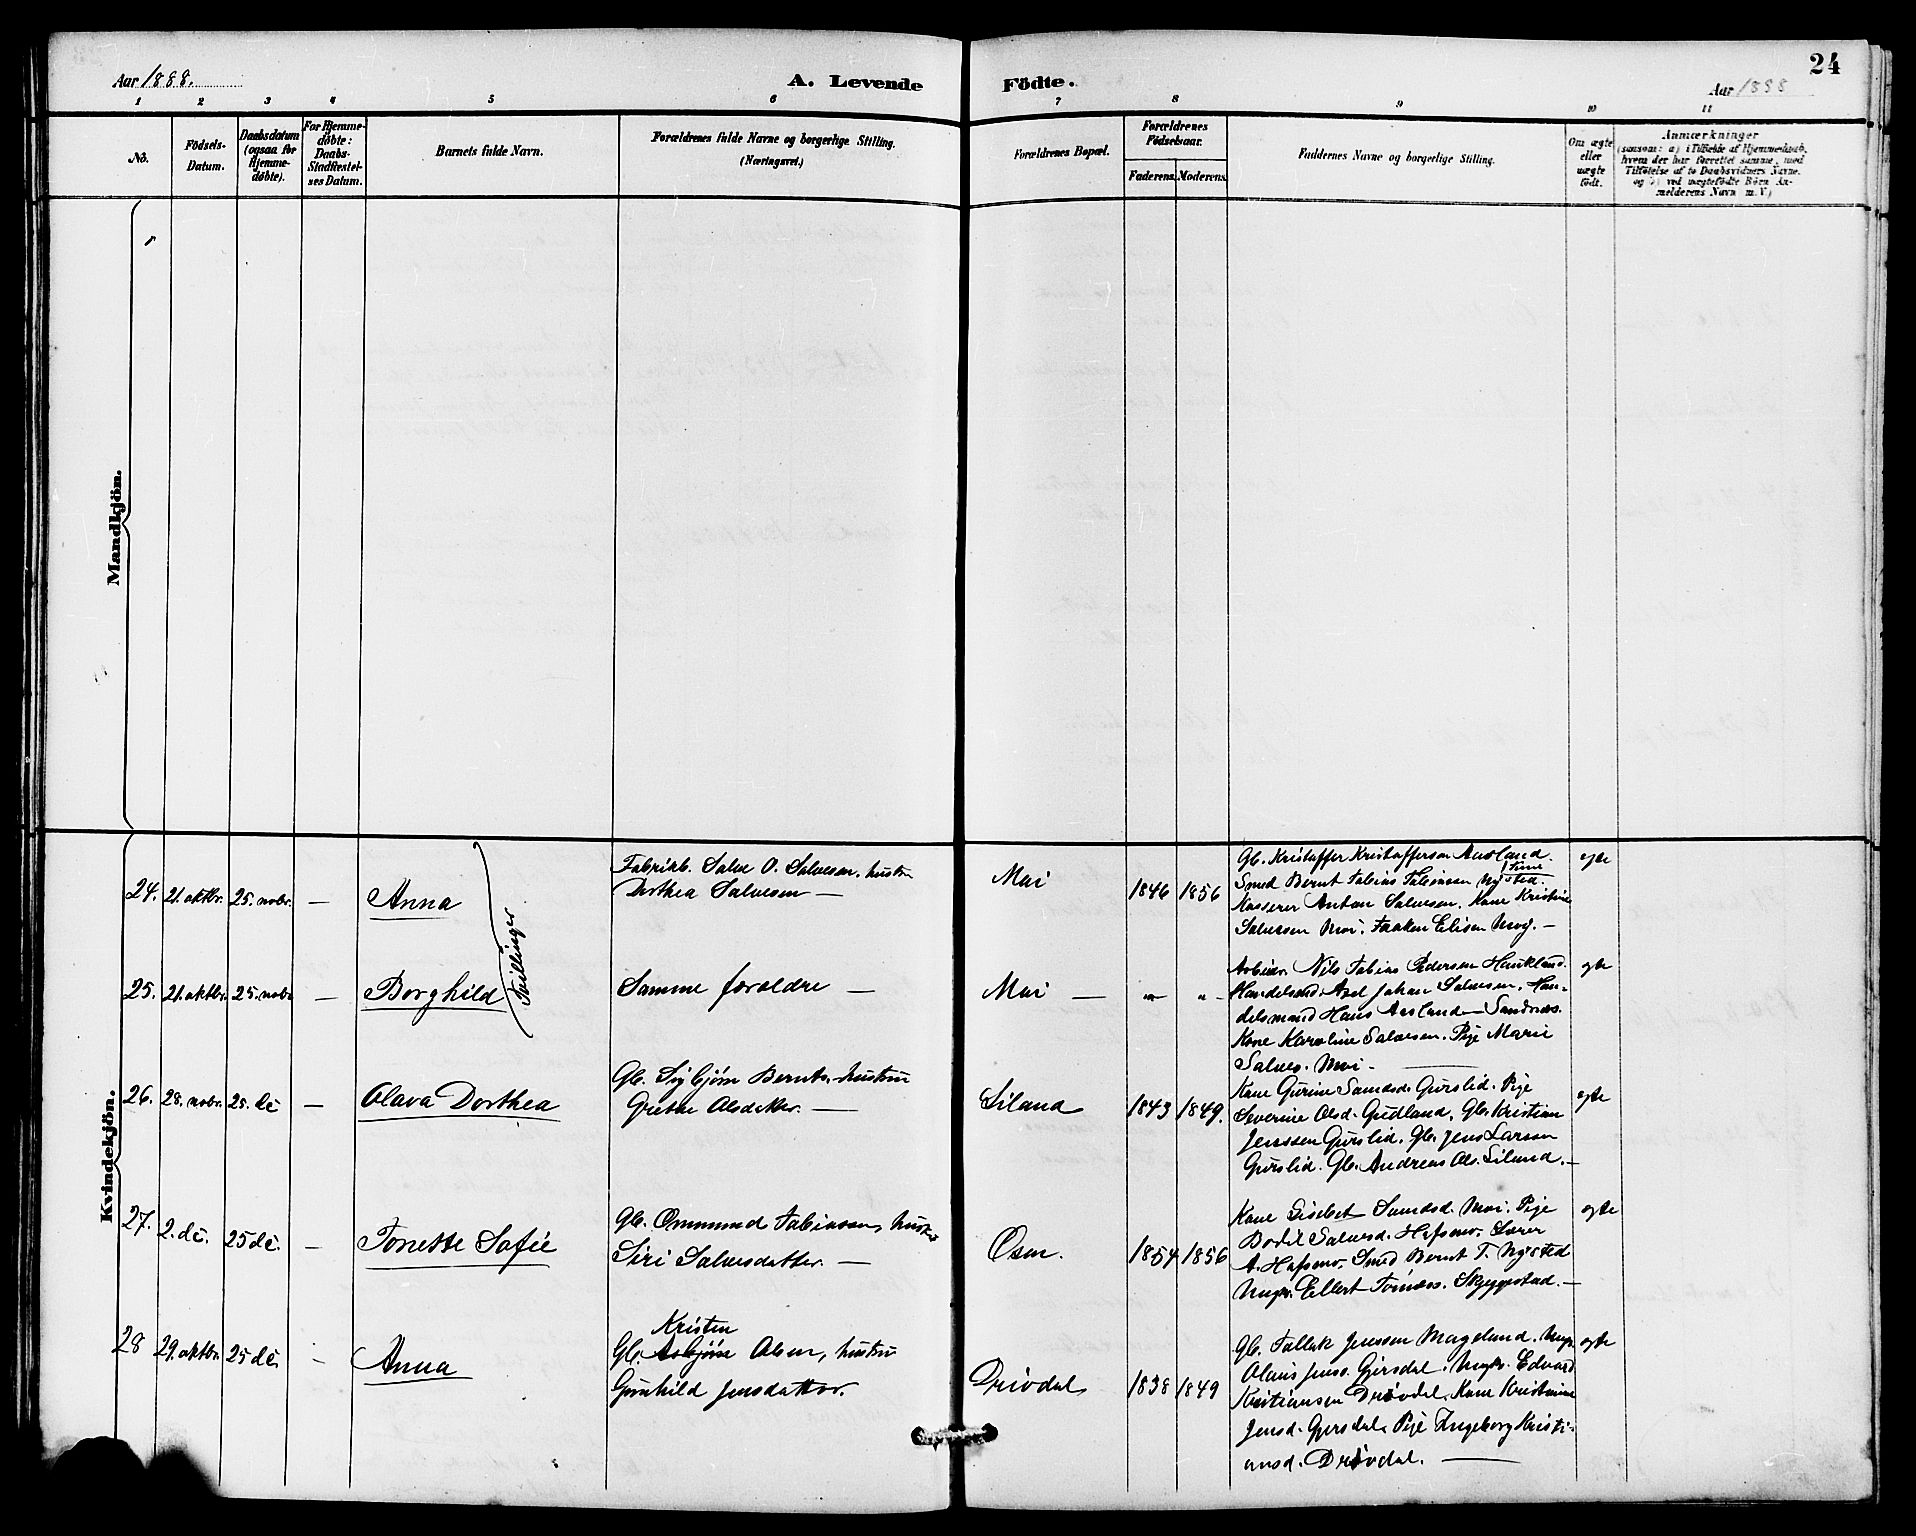 24
Aar 1888.
A. Levende Födte.
Aar 1888
1 2 3 4 5 6 7 8 9 10 11
No.
Födsels-
Datum.
Daabsdatum
(ogsaa for
Hjemme-
døbte).
For Hjemme-
døbte:
Daabs-
Stadfæstel-
ses Datum.
Barnets fulde Navn.
Forældrenes fulde Navne og borgerlige Stilling.
(Næringsvei.)
Forældrenes Bopæl.
Forældrenes
Födselsaar.
Faderens. Moderens.
Faddernes Navne og borgerlige Stilling.
Om ægte
eller
uægte
födt.
Anmærkninger
(saasom: a) i Tilfælde af Hjemmedaab,
hvem der har forrettet samme, med
Tilföielse af to Daabsvidners Navne.
og b) ved uægtefödte Börn An-
melderens Navn m. V.)
Mandkjön.
Kvindekjön.
24. 21. oktbr. 25. novbr. — Anna
Tvillinger
Fabrikb. Salve O. Salvesen, hustru
Dorthea Salvesen —
Moi
1846 1856
Gb. Kristoffer Kristoffersen Ausland.
Smed Bernt Tobias Tobiassen Nysted.
Kasserer Anton Salvesen. Kone Kristine
Salvesen Moi. Frøken Elisen Moij. —
egte
25. 21. oktbr. 25. novbr — Borghild
Samme foraldre —
Moi — " — " —
Arbeider. Nils Tobias Pedersen Haukland.
Handelsmd. Axel Johan Salvesen. Han-
delsmand Hans Aasland — Sandnæs.
Kone Karoline Salvesen. Pige Marie
Salves. Moi. —
egte
26. 28. novbr. 25. de — Olava Dorthea
Gb. Sigbjørn Bernts. hustru
Grethe Olsdatter. —
Liland
1843 1849.
Kone Gurine Samdsd. Gurslid. Pige
Severine Olsd. Gudland. Gb. Kristian
Jenssen Gurslid. Gb. Jens Larsen
Gurslid. Gb. Andreas Ols. Liland. —
egte
27. 2. de. 25 de. — Tonette Sofie
Gb. Osmund Tobiassen, hustru
Siri Salvesdatter. —
Osen.
1854 1856
Kone Lisebet Samdsd. Moi. Pige
Bodil Salvesd. Hafsmo. Lærer
A. Hafsmo. Smed Bernt T. Nysted
Ungkr. Ellert Tonnæs. Skeggestad. —
egte
28 29. oktbr. 25 de. — Anna
Kristen
Gb. Asbjørn Olsen, hustru
Gunhild Jensdatter.
Drivdal
1838 1849
Gb. Tallak Jenssen Mageland. Ungk.
Olaus Jens. Gjersdal. Ungkr. Edvard
Kristiansen Drivdal. Kone Kristine
Jensd. Gjersdal. Pige Ingeborg Kristi-
ansd. Drivdal. —
egte